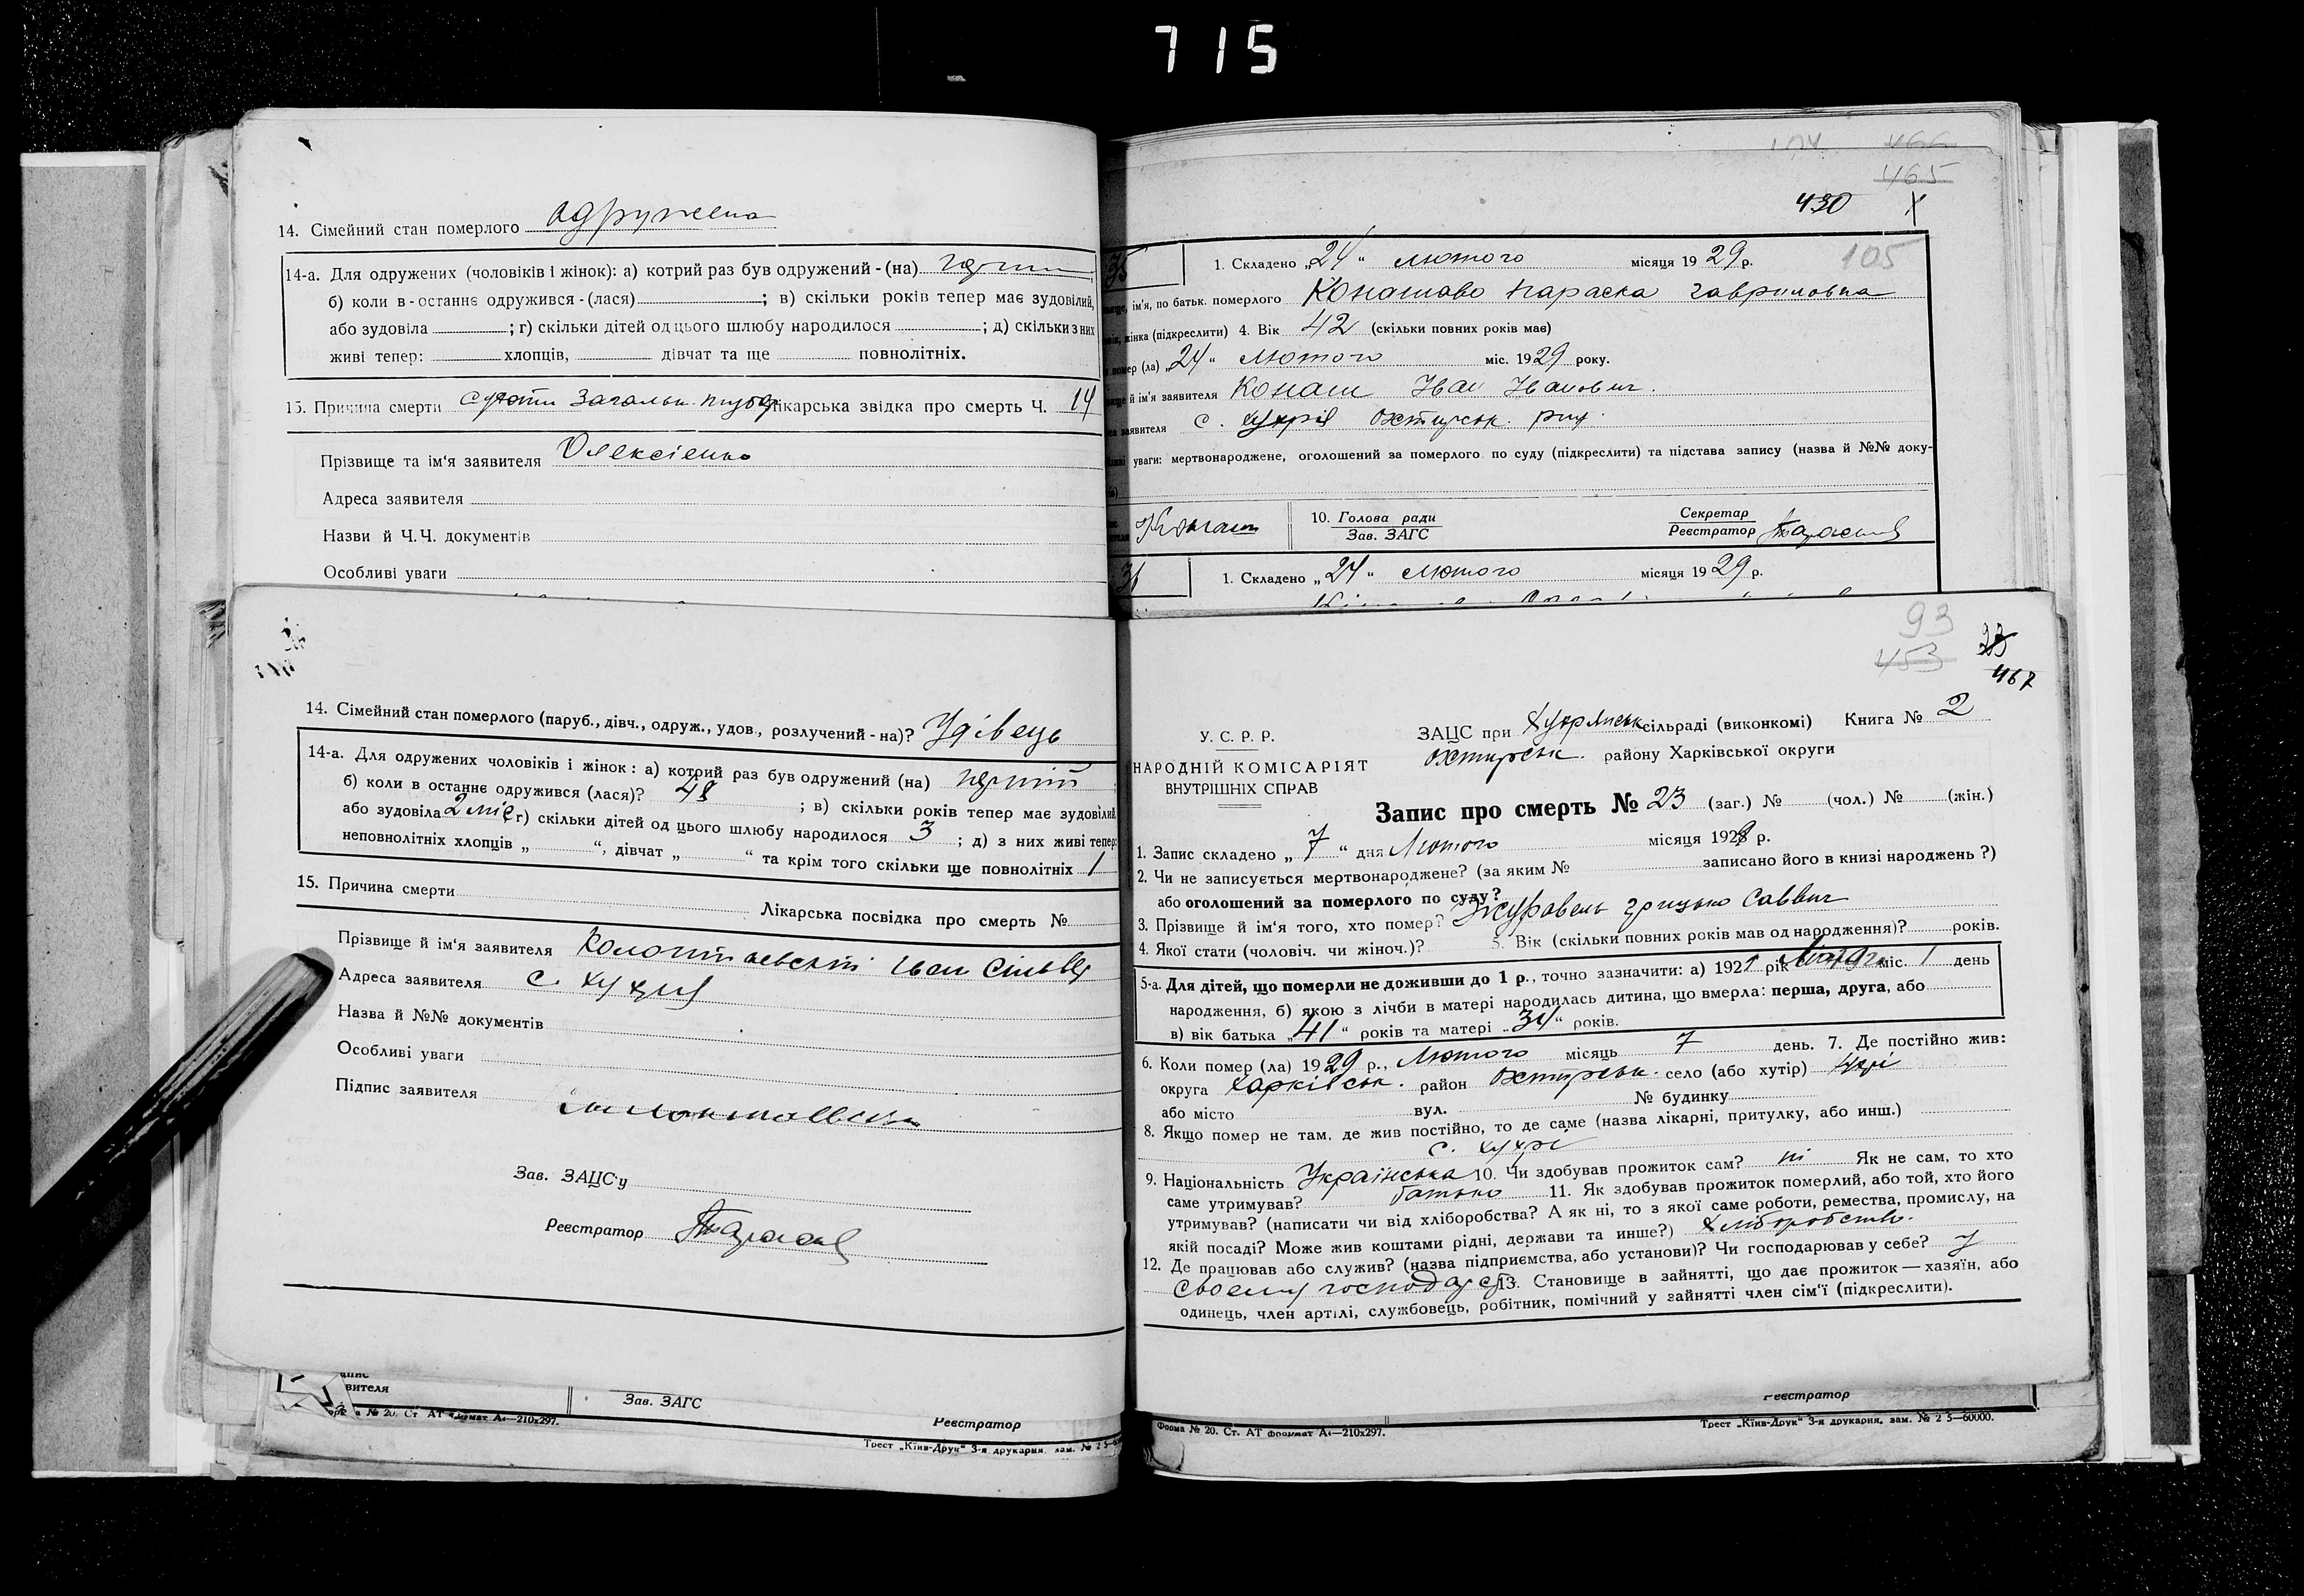 715
14. Сімейний стан померлого одружена
14-а. Для одружених (чоловіків і жінок): а) котрий раз був одружений-(на)
б) коли в-останнє одружився-(лася) ; в) скільки років тепер має зудовілий,
або зудовіла ; г) скільки дітей од цього шлюбу народилося ; д) скільки з них
живі тепер: хлопців, дівчат та ще повнолітніх.
15. Причина смерти лікарська звідка про смерть Ч. 14
Прізвище та ім'я заявителя Олексієнко
Адреса заявителя
Назви й Ч.Ч. документів
Особливі уваги
466
465
430
105
1. Складено „24“ лютого місяця 1929 р.
ім'я, по батьк. померлого Параска Гавриловна
жінка (підкреслити) 4. Вік 42 (скільки повних років має)
(ла) „24“ Лютого міс. 1929 року.
й ім'я заявителя Конаш Іван Іванович.
заявителя с. Хухрі Охтирськ. рну.
уваги: мертвонароджене, оголошений за померлого по суду (підкреслити) та підстава запису (назва й №№ доку-
Конаш 10. Голова ради Секретар
Зав. ЗАГС Реєстратор
1. Складено „24“ лютого місяця 1929 р.
14. Сімейний стан померлого (паруб., дівч., одруж., удов., розлучений-на)? Удівець
14-а. Для одружених чоловіків і жінок: а) котрий раз був одружений (на)
б) коли в останнє одружився (лася)? 48 ; в) скільки років тепер має зудовілий
або зудовіла 2 міс г) скільки дітей од цього шлюбу народилося 3 ; д) з них живі тепер:
неповнолітніх хлопців „ “, дівчат „ “ та крім того скільки ще повнолітніх 1
15. Причина смерти Лікарська посвідка про смерть №
Прізвище й ім'я заявителя Іван
Адреса заявителя с. Хухрі
Назва й №№ документів
Особливі уваги
Підпис заявителя
Зав. ЗАЦС'у
Реєстратор
93
453
23
467
У. С. Р. Р.
НАРОДНІЙ КОМІСАРІЯТ
ВНУТРІШНІХ СПРАВ
ЗАЦС при Хухрянськ сільраді (виконкомі) Книга № 2
Охтирськ. району Харківської округи
Запис про смерть № 23 (заг.) № (чол.) № (жін.)
1. Запис складено „7“ дня Лютого місяця 192 р.
2. Чи не записується мертвонароджене? (за яким № записано його в книзі народжень?)
або оголошений за померлого по суду?
3. Прізвище й ім'я того, хто помер? Журавель Грицько Саввич
4. Якої стати (чоловіч. чи жіноч.)? 5. Вік (скільки повних років мав од народження)? років.
5-а. Для дітей, що померли не доживши до 1 р., точно зазначити: а) 192 рік міс. 1 день
народження, б) якою з лічби в матері народилась дитина, що вмерла: перша, друга, або
в) вік батька „41“ років та матері „34“ років.
6. Коли помер (ла) 1929 р., Лютого місяць 7 день. 7. Де постійно жив:
округа Харківськ. район Охтирськ. село (або хутір)
або місто вул. № будинку
8. Якщо помер не там, де жив постійно, то де саме (назва лікарні, притулку, або инш.)
с. Хухрі
9. Національність Українська 10. Чи здобував прожиток сам? ні Як не сам, то хто
саме утримував? батько 11. Як здобував прожиток померлий, або той, хто його
утримував? (написати чи від хліборобства? А як ні, то з якої саме роботи, ремества, промислу, на
якій посаді? Може жив коштами рідні, держави та инше?) Хліборобство.
12. Де працював або служив? (назва підприємства, або установи)? Чи господарював у себе? у
своему господарст 13. Становище в зайнятті, що дає прожиток — хазяїн, або
одинець, член артілі, службовець, робітник, помічний у зайнятті член сім'ї (підкреслити).
вителя
Зав. ЗАГС
Реєстратор
№ 20. Ст. АТ формат А4—210х297.
Трест „Київ-Друк“ 3-я друкарня, зам. № 2
Реєстратор
Форма № 20. Ст. АТ формат А4—210х297.
Трест „Київ-Друк“ 3-я друкарня, зам. № 2 5—60000.